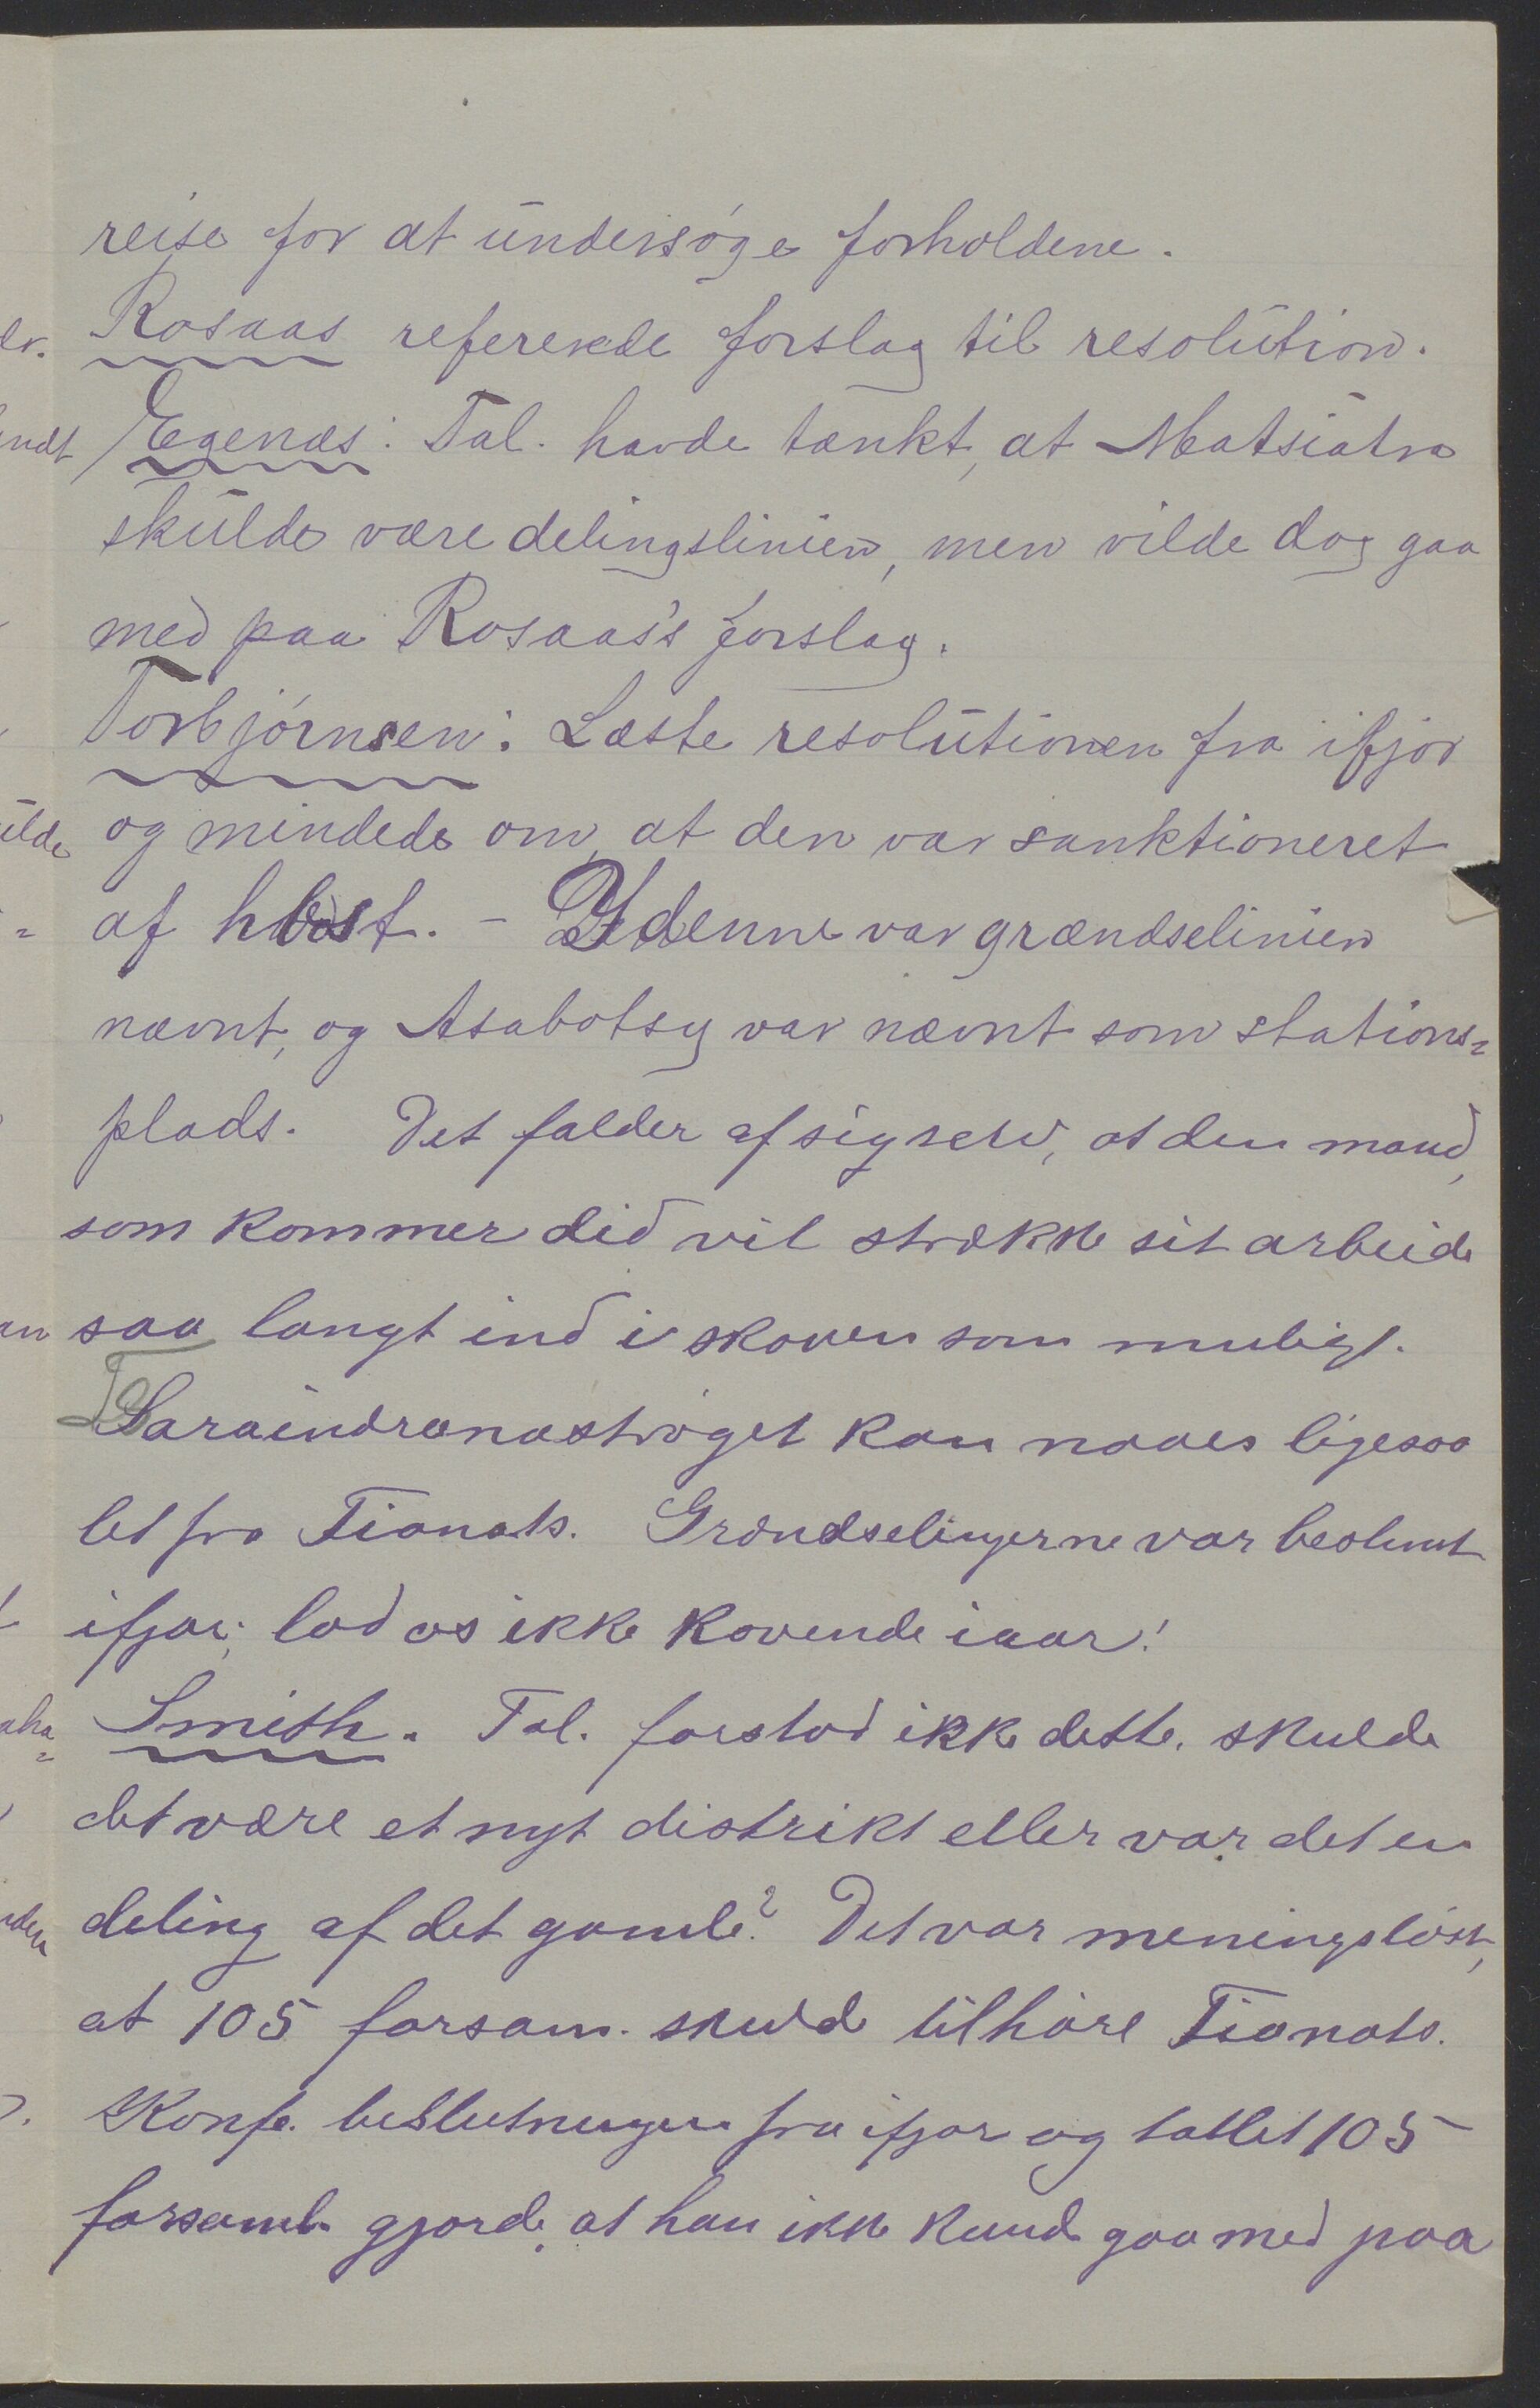 reise for at undersøge forholdene.
Rosaas refererede forslag til resolution.
Egenæs: Tal. havde tænkt, at Matsiatra
skulde være delingslinien, men vilde dog gaa
med paa Rosaas's forslag.
Torbjørnsen: Læste resolutionen fra ifjor
og mindede om, at den var sanktioneret
af hbst. - I denne var grændselinien
nævnt, og Asabotsy var nævnt som stations=
plads. Det falder af sig selv, at den mand,
som kommer did vil strække sit arbeide
saa langt ind i skoven som muligt.
Taraindranastrøget kan naaes ligesaa
let fra Fianats. Grændselinjerne var bestemt
ifjor; lad os ikke kovende iaar!
Smith. Tal. forstod ikke dette. skulde
det være et nyt distrikt eller var det en
deling af det gamle? Det var meningsløst,
at 105 forsam. skuld tilhøre Fianats.
Konf. beslutningen fra ifjor og tallet 105
forsaml. gjorde, at han ikke kunde gaa med paa